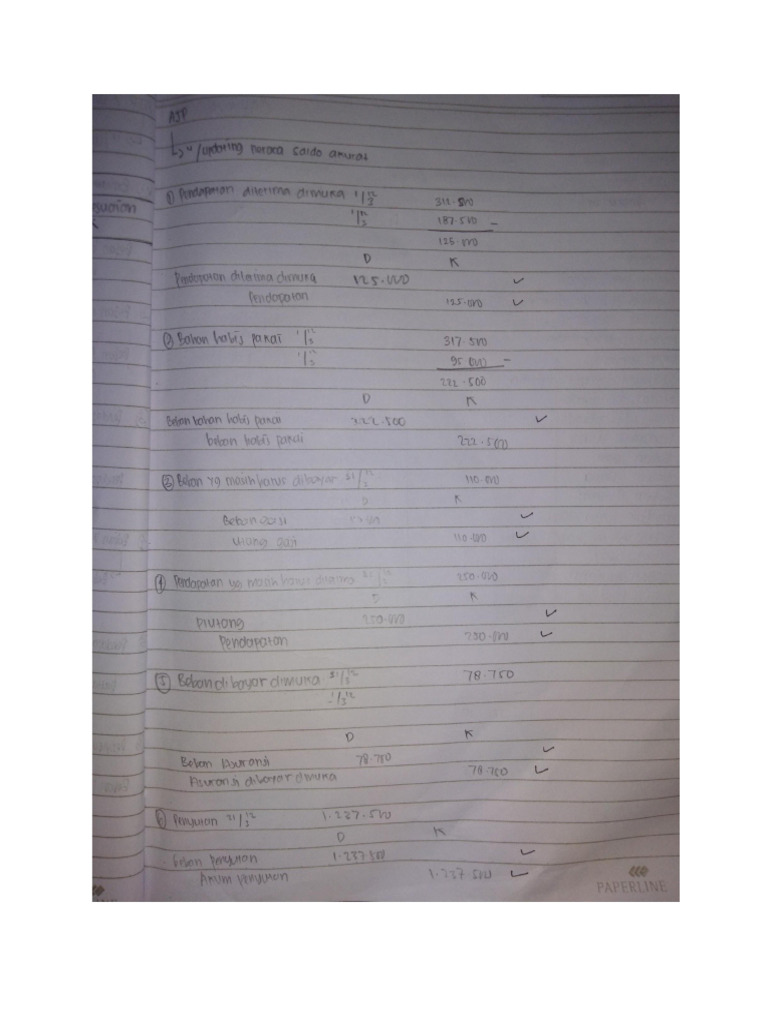 AJP
/updating neraca saldo akurat
① Pendapatan diterima dimuka 1/3 12 311.500
1/3 12 187.500 -
125.000
D K
Pendapatan diterima dimuka 125.000 ✓
Pendapatan 125.000 ✓
② Bahan habis pakai 1/3 12 317.500
1/3 12 95.000 -
222.500
D K
Beban bahan habis pakai 222.500 ✓
bahan habis pakai 222.500
③ Beban yg masih harus dibayar 31/3 12 110.000
D K
Beban gaji ✓
Utang gaji 110.000 ✓
④ Pendapatan yg masih harus diterima 250.000
D K
Piutang 250.000 ✓
Pendapatan 250.000 ✓
⑤ Beban dibayar dimuka 31/3 12 78.750
1/3 12
D K
Beban Asuransi 78.750 ✓
Asuransi dibayar dimuka 78.750 ✓
⑥ Penyutan 31/3 12 1.237.500
D K
Beban penyutan 1.237.500 ✓
Akum penyutan 1.237.500 ✓
PAPERLINE
suaian